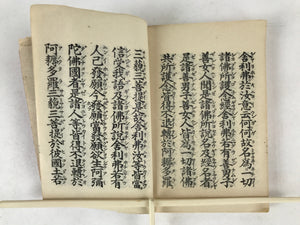 舍利弗於汝意云何何故名為一切
諸佛所護念經舍利弗若有善男子
善女人聞是諸佛所說名及經名者
是諸善男子善女人皆為一切諸佛
共所護念皆得不退轉於阿耨多羅
三藐三菩提是故舍利弗汝等皆當
信受我語及諸佛所說舍利弗若有
人已發願今發願當發願欲生阿彌
陀佛國者是諸人等皆得不退轉於
阿耨多羅三藐三菩提於彼國土若